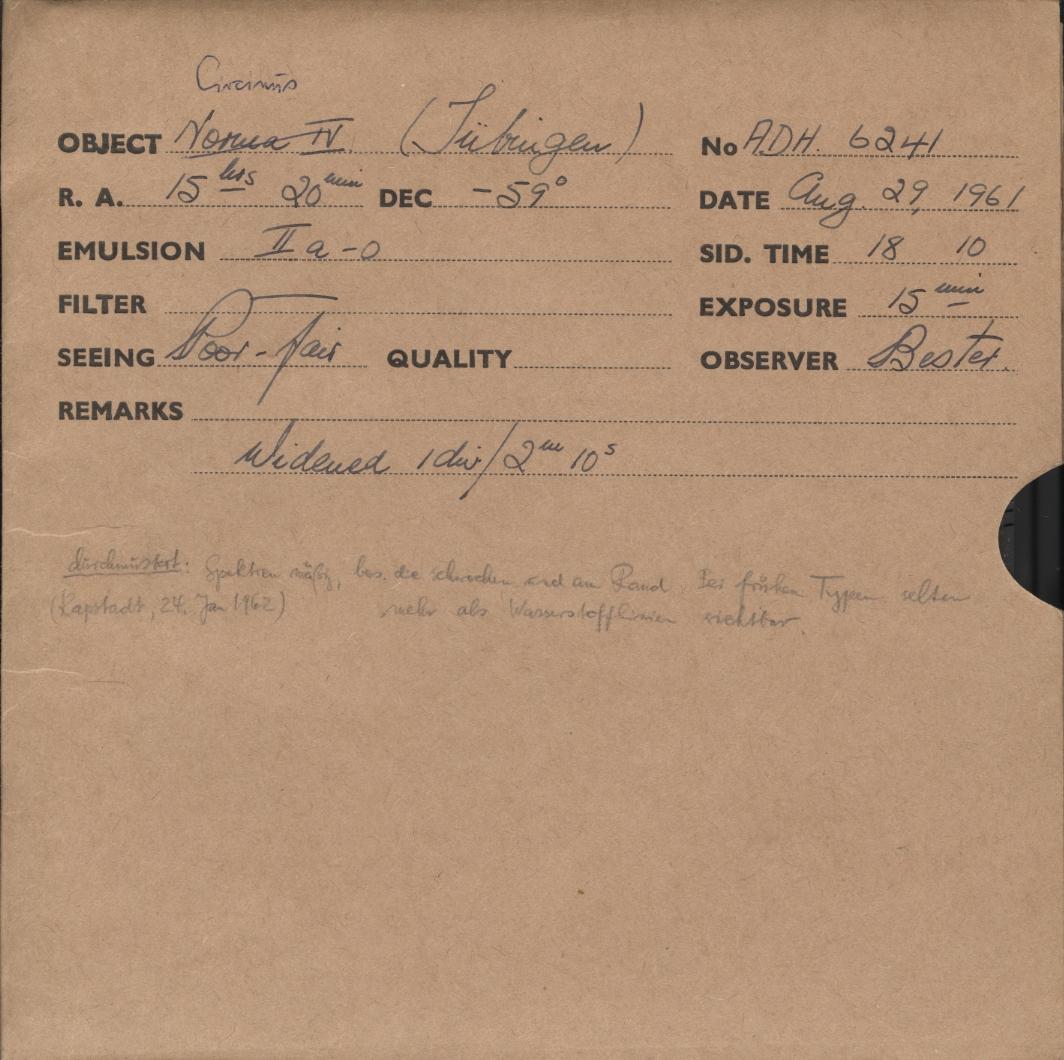 Circinus
OBJECT Norma IV (Tübingen) No ADH. 6241
R. A. 15 hrs 20 min DEC -59° DATE Aug. 29, 1961
EMULSION IIa-O SID. TIME 18 10
FILTER EXPOSURE 15 min
SEEING Poor-fair QUALITY OBSERVER Bester.
REMARKS
Widened 1 div/2m 10s
durchmustert: Spektren mäßig, bes. die schwachen und am Rand. Bei frühen Typen selten
(Kapstadt, 24. Jan 1962) mehr als Wasserstofflinien sichtbar.